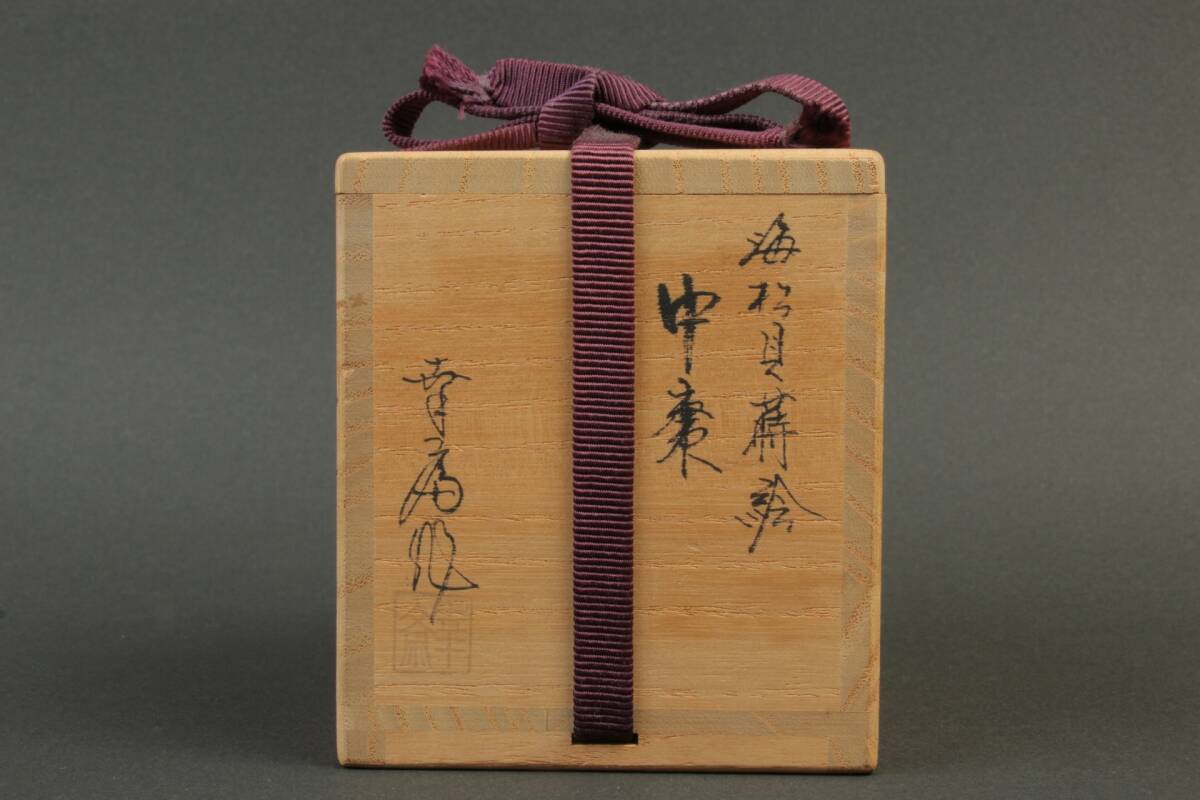 海松貝蒔絵
中棗
幸斎作